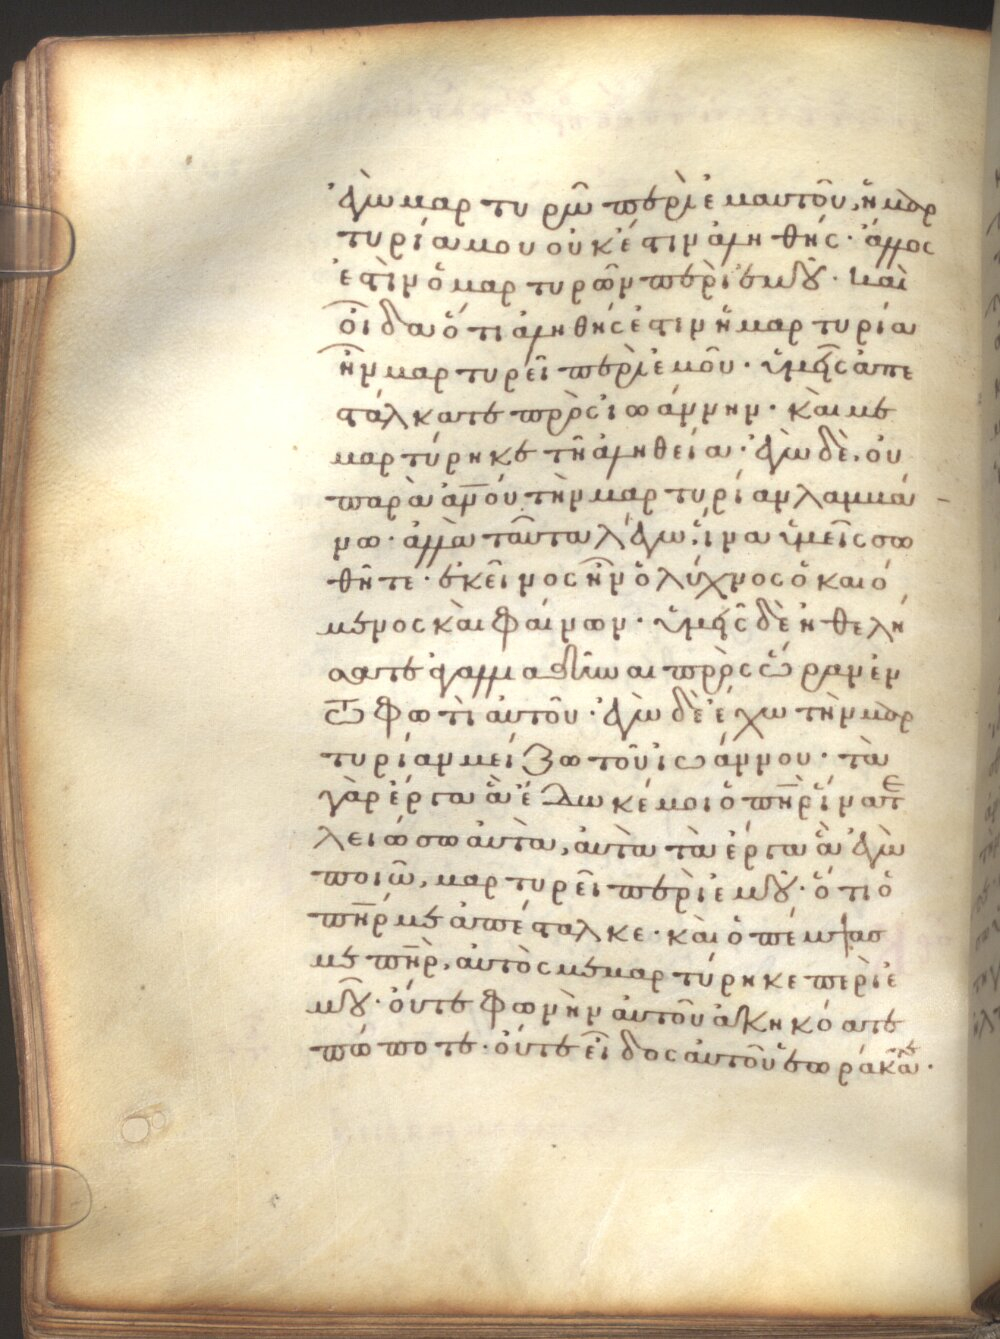 ἐγὼ μαρτυρῶ περὶ ἐμαυτοῦ, ἡ μαρ
τυρία μου οὐκ ἔστιν ἀληθής· ἄλλος
ἐστὶν ὁ μαρτυρῶν περὶ ἐμοῦ· καὶ
οἶδα ὅτι ἀληθής ἐστιν ἡ μαρτυρία
ἣν μαρτυρεῖ περὶ ἐμοῦ· ὑμεῖς ἀπε
στάλκατε πρὸς ἰωάννην· καὶ με
μαρτύρηκε τῇ ἀληθεία· ἐγὼ δὲ, οὐ
παρὰ ἀνου τὴν μαρτυρίαν λαμμβά
νω· ἀλλὰ ταῦτα λέγω, ἵνα ὑμεῖς σω
θῆτε· ἐκεῖνος ἦν ὁ λύχνος ὁ καιό
μενος καὶ φαίνων· ὑμεῖς δὲ ἠθελή
σατε ἀγαλλιαθῆναι πρὸς ὥραν ἐν
τῶ φωτὶ αὐτοῦ· ἐγὼ δὲ ἔχω τὴν μαρ
τυρίαν μείζω τοῦ ἰωάννου· τὰ
γὰρ ἔργα ἃ ἔδωκέ μοι ὁ πηρ ἵνα τε
λειώσω αὐτὰ, αὐτὰ τὰ ἔργα ἃ ἐγὼ
ποιῶ, μαρτυρεῖ περὶ ἐμοῦ· ὅτι ὁ
πηρ με ἀπέσταλκε· καὶ ὁ πέμψας
με πηρ, αὐτὸς μεμαρτύρηκε περὶ ἐ
μοῦ· οὔτε φωνὴν αὐτοῦ ἀκηκόατε
πώποτε· οὔτε εἶδος αὐτοῦ ἑωράκατε·